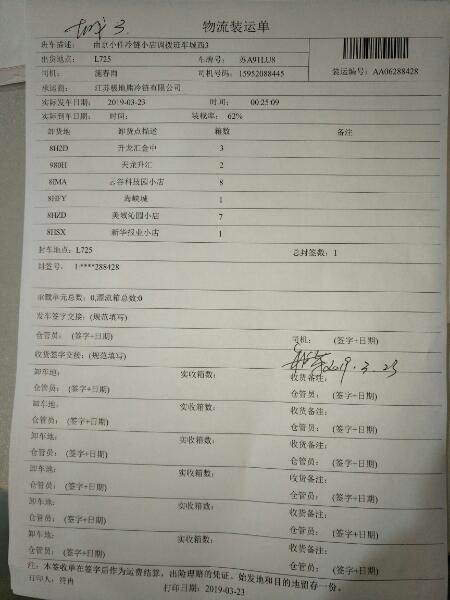 物流装运单
班车描述： 南京小件冷链小店调拨班车城西3
出货地点： L725 车牌号： 苏A91LU8
司机： 施春雨 司机号码： 15952088445 装运编号： AA06288428
承运商： 江苏极地熊冷链有限公司
实际发车日期： 2019-03-23 时间： 00:25:09
实际到车日期： 时间： 装载率： 62%
卸货地 卸货点描述 箱数 备注
8H2D 升龙汇金中 3
980H 天龙升汇 2
8IMA 云谷科技园小店 8
8HFY 海峡城 1
8HZD 美域沁园小店 7
8HSX 新华报业小店 1
封车地点： L725 总封签数： 1
封签号： 1:****288428
承载单元总数： 0,漂流箱总数:0
发车签字交接：(规范填写)
仓管员： (签字+日期) 司机： (签字+日期)
收货签字交接：(规范填写) 2019.3.23
卸车地： 实收箱数： 收货备注：
仓管员： (签字+日期) 仓管员： (签字+日期)
卸车地： 实收箱数： 收货备注：
仓管员： (签字+日期) 仓管员： (签字+日期)
卸车地： 实收箱数： 收货备注：
仓管员： (签字+日期) 仓管员： (签字+日期)
卸车地： 实收箱数： 收货备注：
仓管员： (签字+日期) 仓管员： (签字+日期)
卸车地： 实收箱数： 收货备注：
仓管员： (签字+日期) 仓管员： (签字+日期)
卸车地： 实收箱数： 收货备注：
仓管员： (签字+日期) 仓管员： (签字+日期)
注：本签收单在签字后作为运费结算，出险理赔的凭证，始发地和目的地留存一份。
打印人：符冉 打印日期：2019-03-23